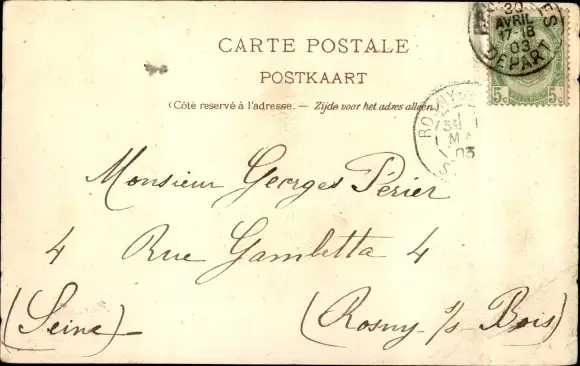 30
AVRIL
17-18
03
DEPART
5 c 5 c
CARTE POSTALE
POSTKAART
(Côté reservé à l'adresse. — Zijde voor het adres alleen.)
03
Monsieur Georges Périer
4 Rue Gambetta 4
(Seine) (Rosny-s/s-Bois)